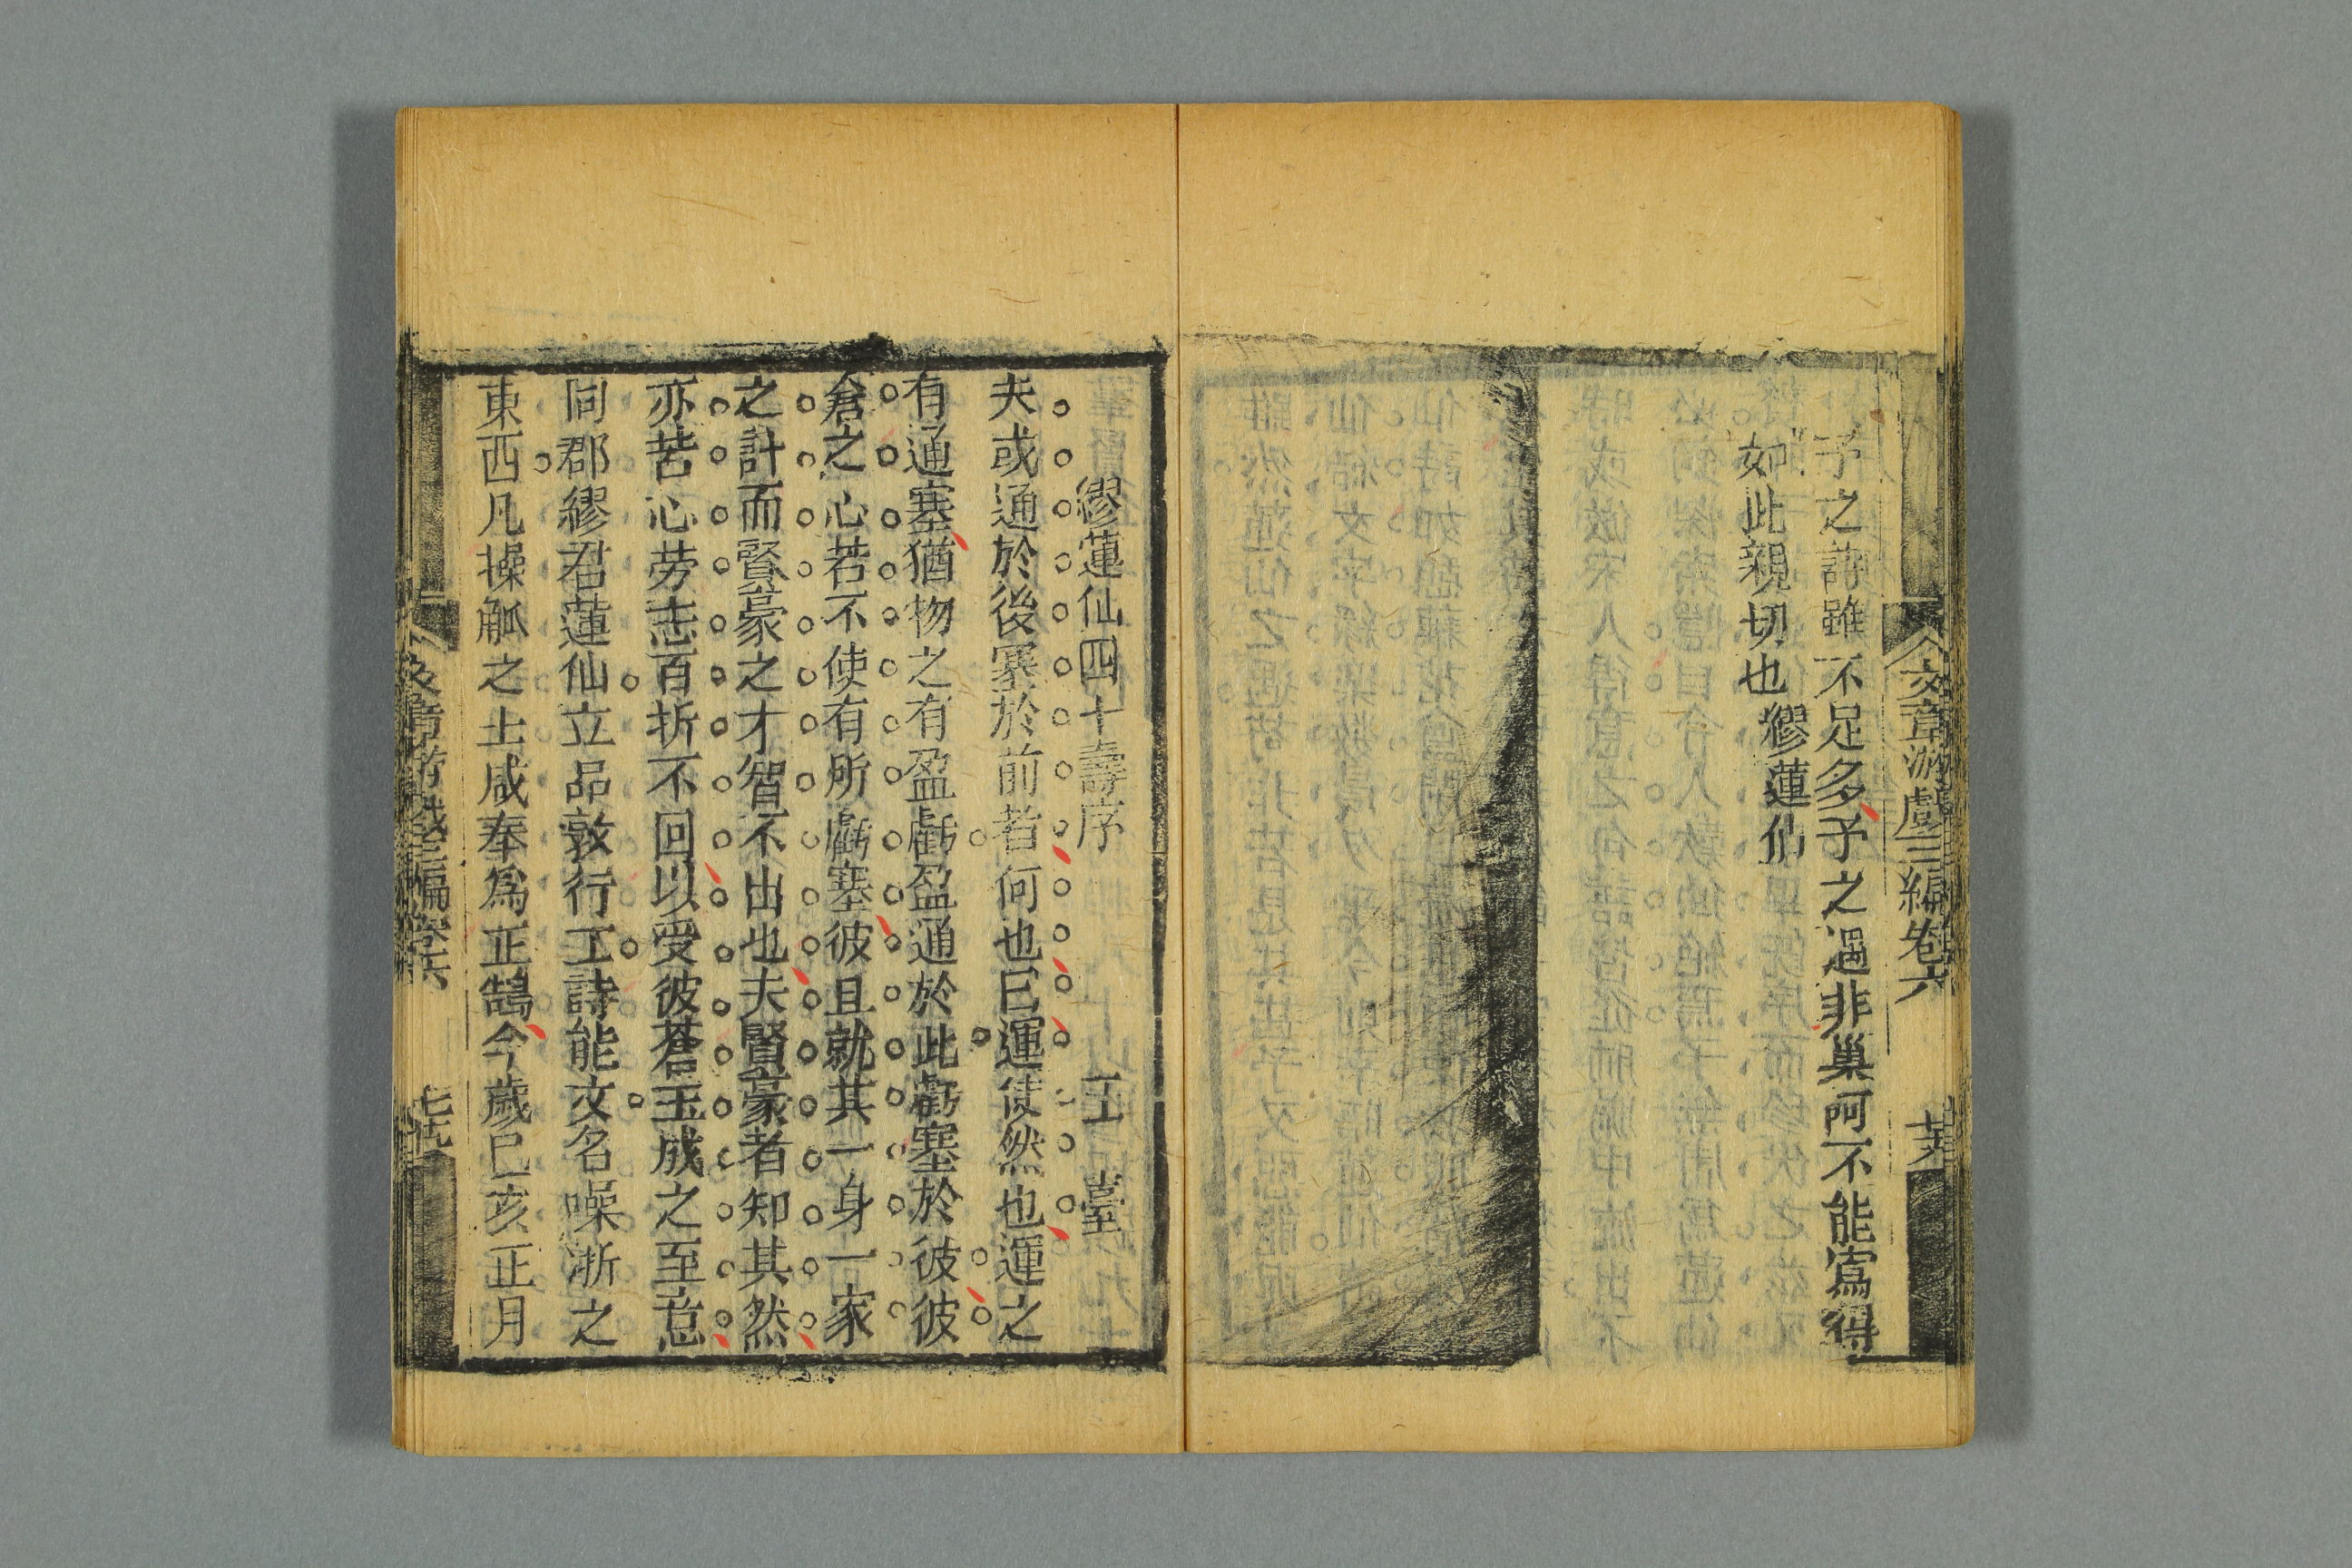 文章游戲三編卷六
予之詩雖不足多予之遇非巢阿不能寫得
如此親切也 繆蓮仙
繆蓮仙四十壽序 王臺
夫或通於後塞於前者何也曰運使然也運之
有通塞猶物之有盈虧盈通於此虧塞於彼彼
倉之心若不使有所虧塞彼且就其一身一家
之計而賢豪之才智不出也夫賢豪者知其然
亦苦心勞志百折不回以受彼蒼玉成之至意
同郡繆君蓮仙立品敦行工詩能文名噪浙之
東西凡操觚之士咸奉為正鵠今歲已亥正月
文章游戲三編卷六